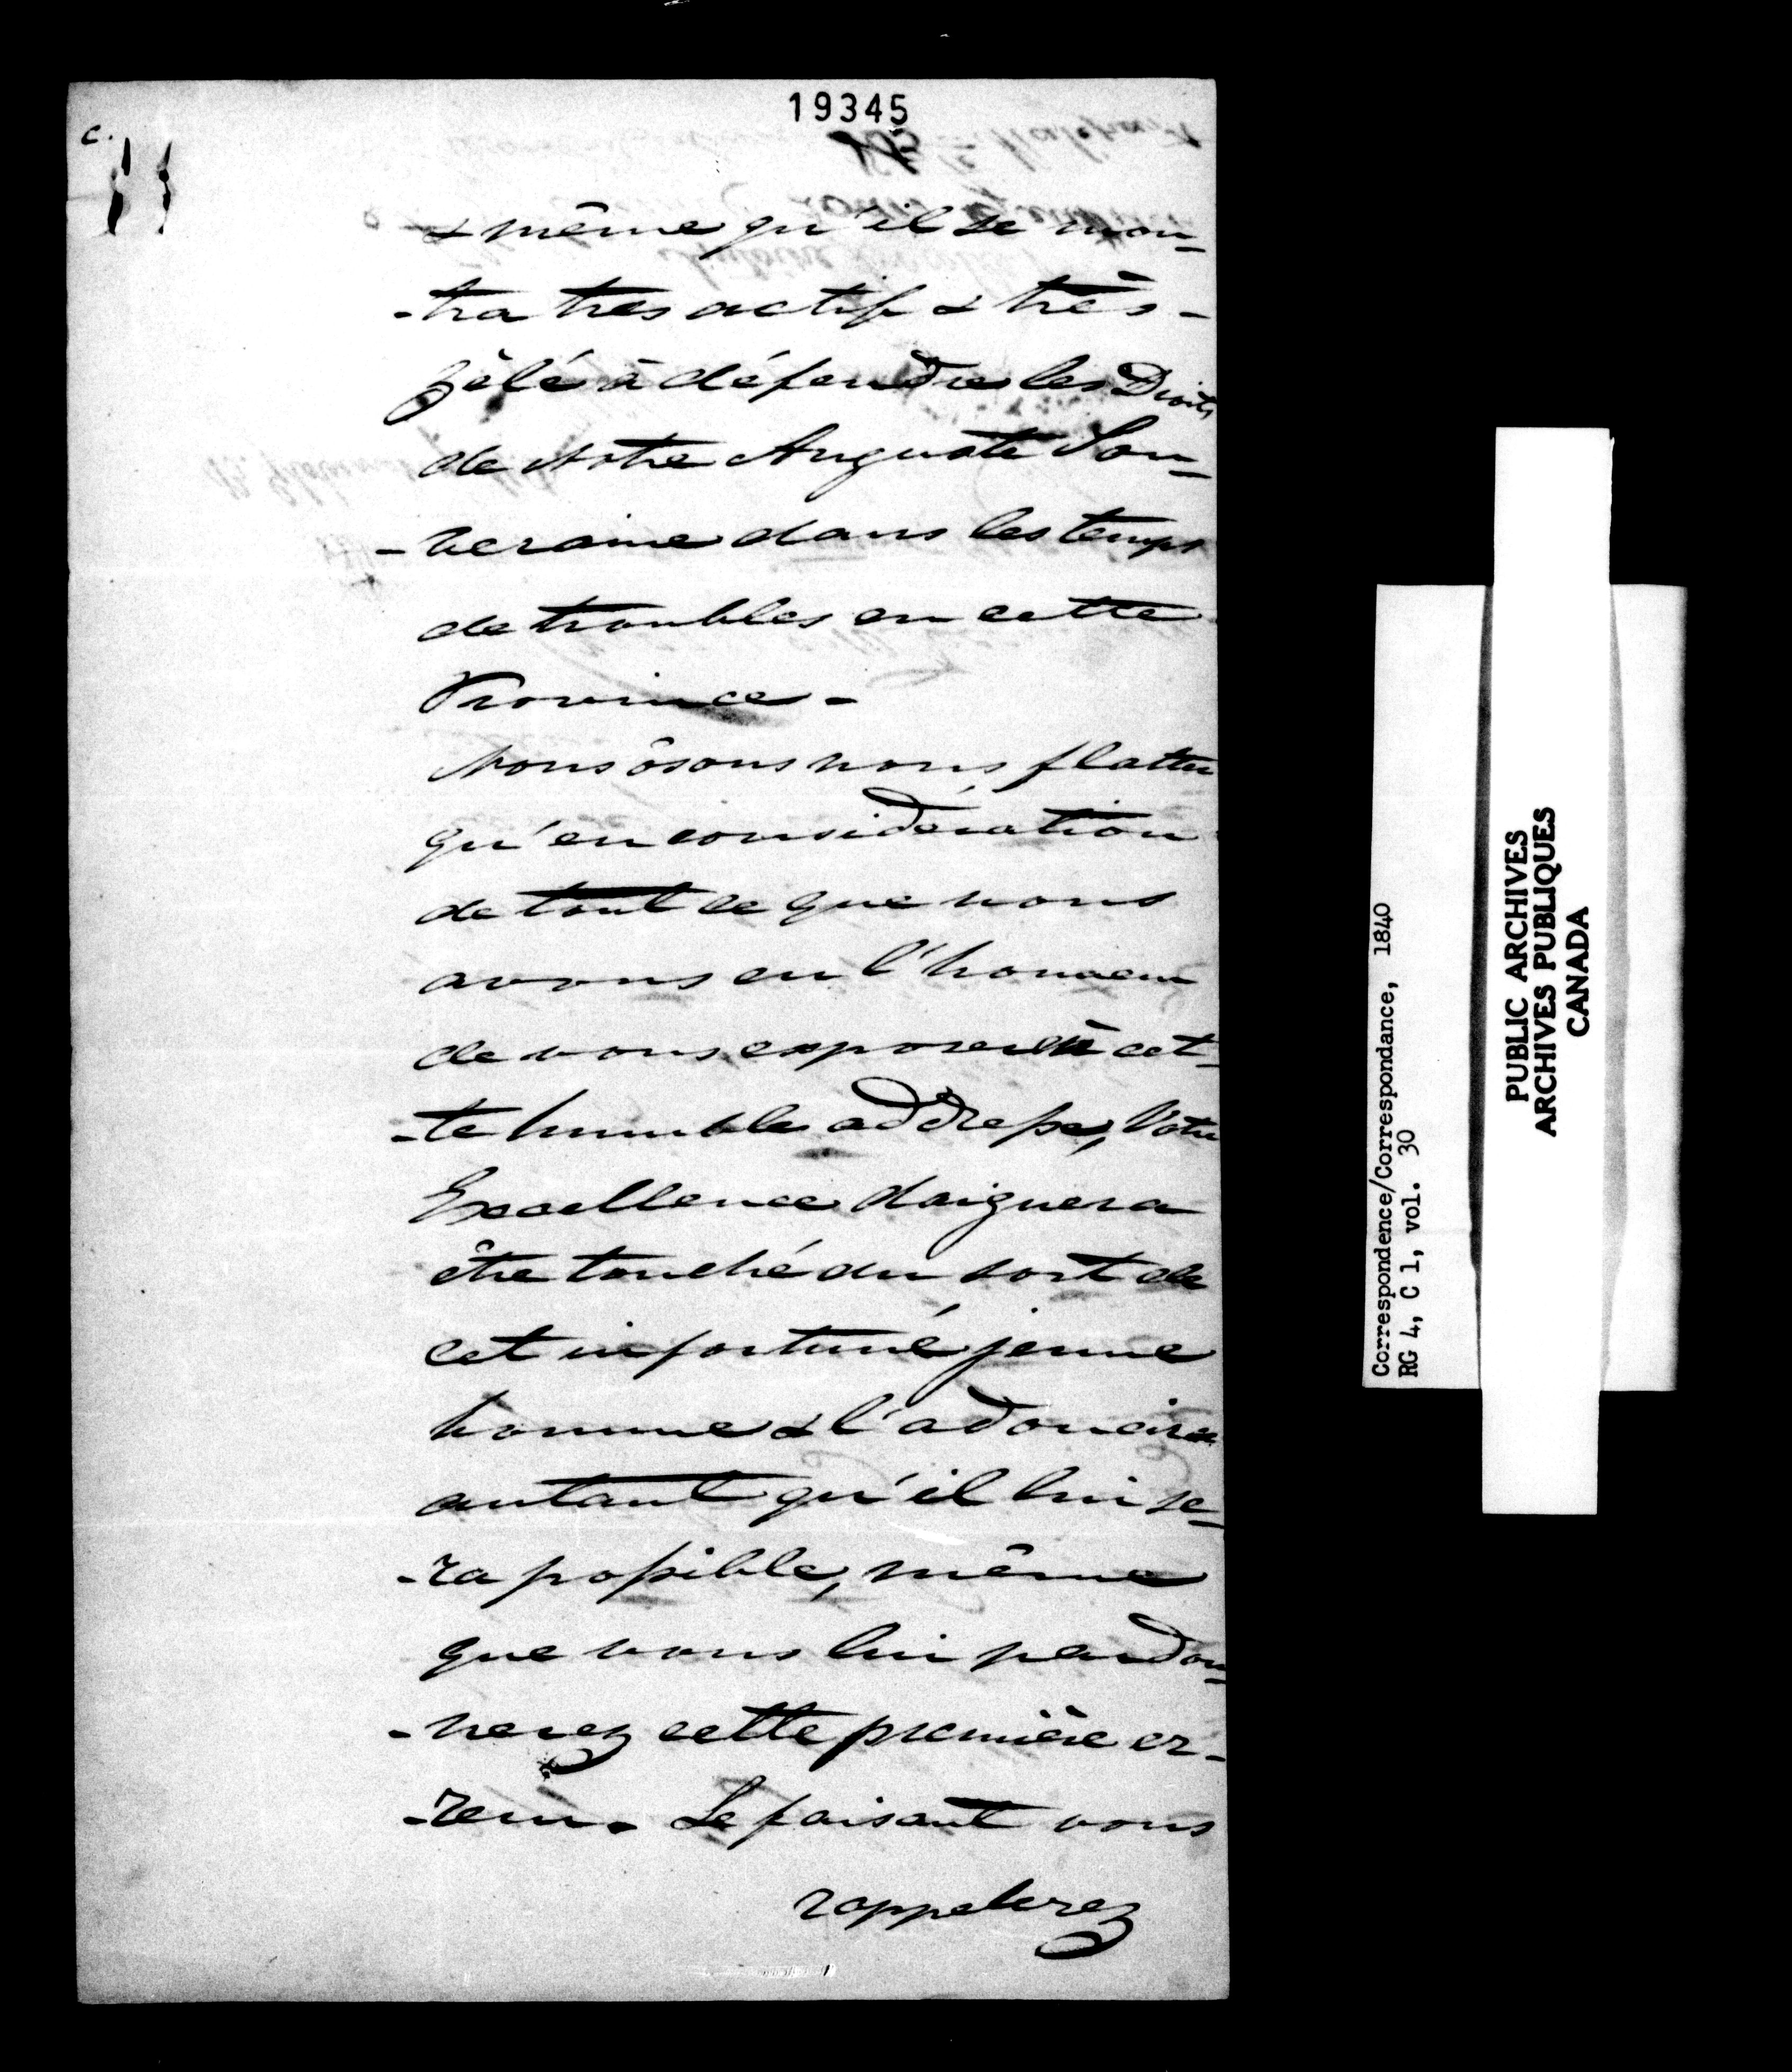 19345
c.
& même qu'il se mon-
-tra tres actif & très-
zèlé à défendre les Droits
de Notre Auguste Sou-
-veraine dans les temps
de troubles en cette
Province -
Nous ôsons nous flatter
qu'en considération
de tout ce que nous
avons eu l'honneur
de vous exposer cet-
-te humble addresse, Votre
Excellence daignera
être touché du sort de
cet infortuné jeune
homme & l'adoucira
autant qu'il lui se-
-ra possible, même
que vous lui pardon-
-nerez cette première er-
-reur. Le faisant vous
rappelerez
Correspondence/Correspondance, 1840
RG 4, C 1, vol. 30
PUBLIC ARCHIVES
ARCHIVES PUBLIQUES
CANADA